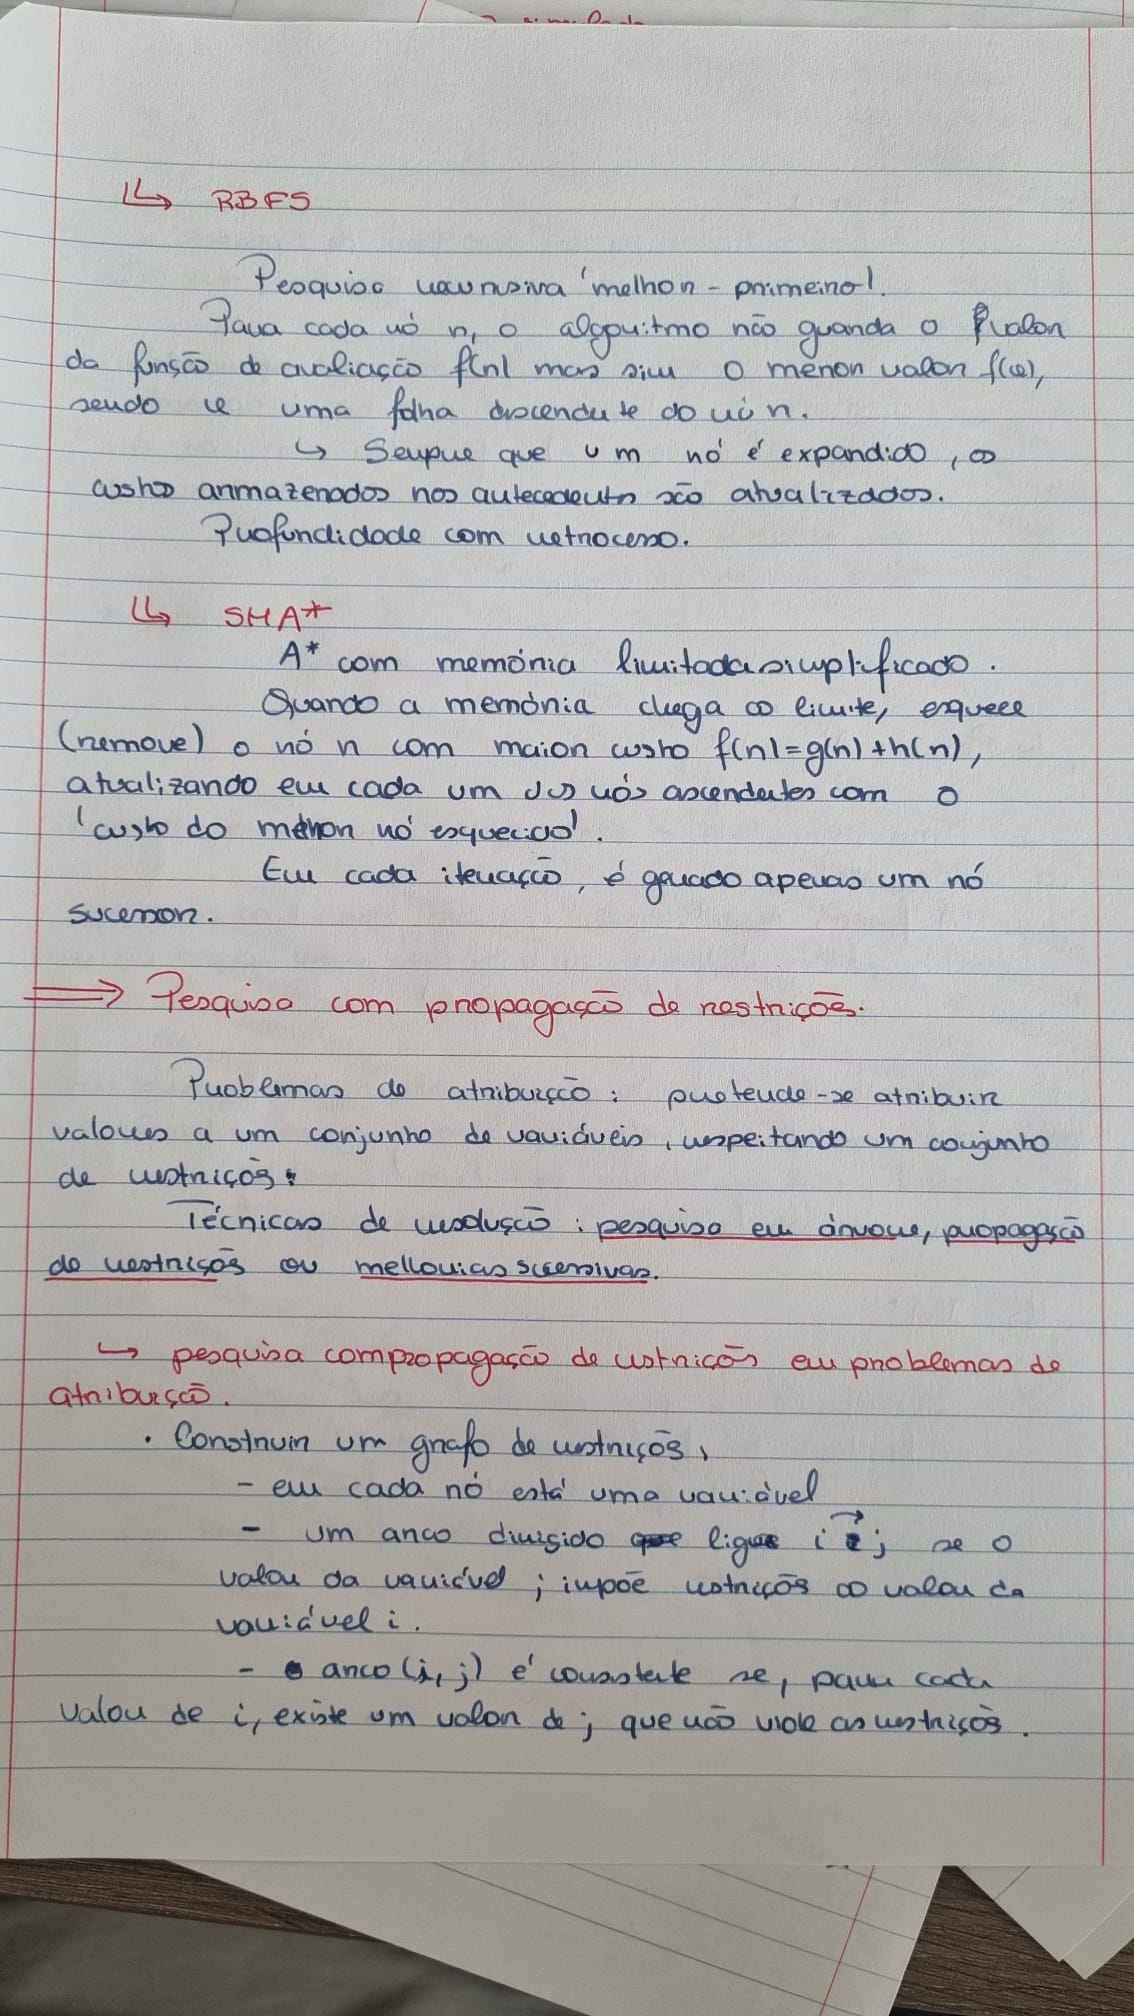 ↳ RBFS
Pesquisa recursiva 'melhor-primeiro'.
Para cada nó n, o algoritmo não guarda o valor
da função de avaliação f(n) mas sim o menor valor f(x),
sendo x uma folha descendente do nó n.
↳ Sempre que um nó é expandido, os
custos armazenados nos antecedentes são atualizados.
Profundidade com retrocesso.
↳ SMA*
A* com memória limitada simplificado.
Quando a memória chega ao limite, esquece
(remove) o nó n com maior custo f(n)=g(n)+h(n),
atualizando em cada um dos nós ascendentes com o
'custo do melhor nó esquecido'.
Em cada iteração, é gerado apenas um nó
sucessor.
⇒ Pesquisa com propagação de restrições.
Problemas de atribuição: pretende-se atribuir
valores a um conjunto de variáveis, respeitando um conjunto
de restrições.
Técnicas de resolução: pesquisa em árvore, propagação
de restrições ou melhorias sucessivas.
↳ pesquisa com propagação de restrições em problemas de
atribuição.
• Construir um grafo de restrições,
- em cada nó está uma variável
- um arco dirigido liga i → j se o
valor da variável j impõe restrições ao valor da
variável i.
- arco (i, j) é consistente se, para cada
valor de i, existe um valor de j que não viole as restrições.